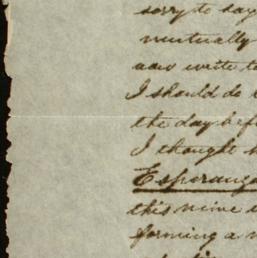 sorry to say
mutually
now write to
I should do
the day bef
I thought
Esperanza
this mine
forming a